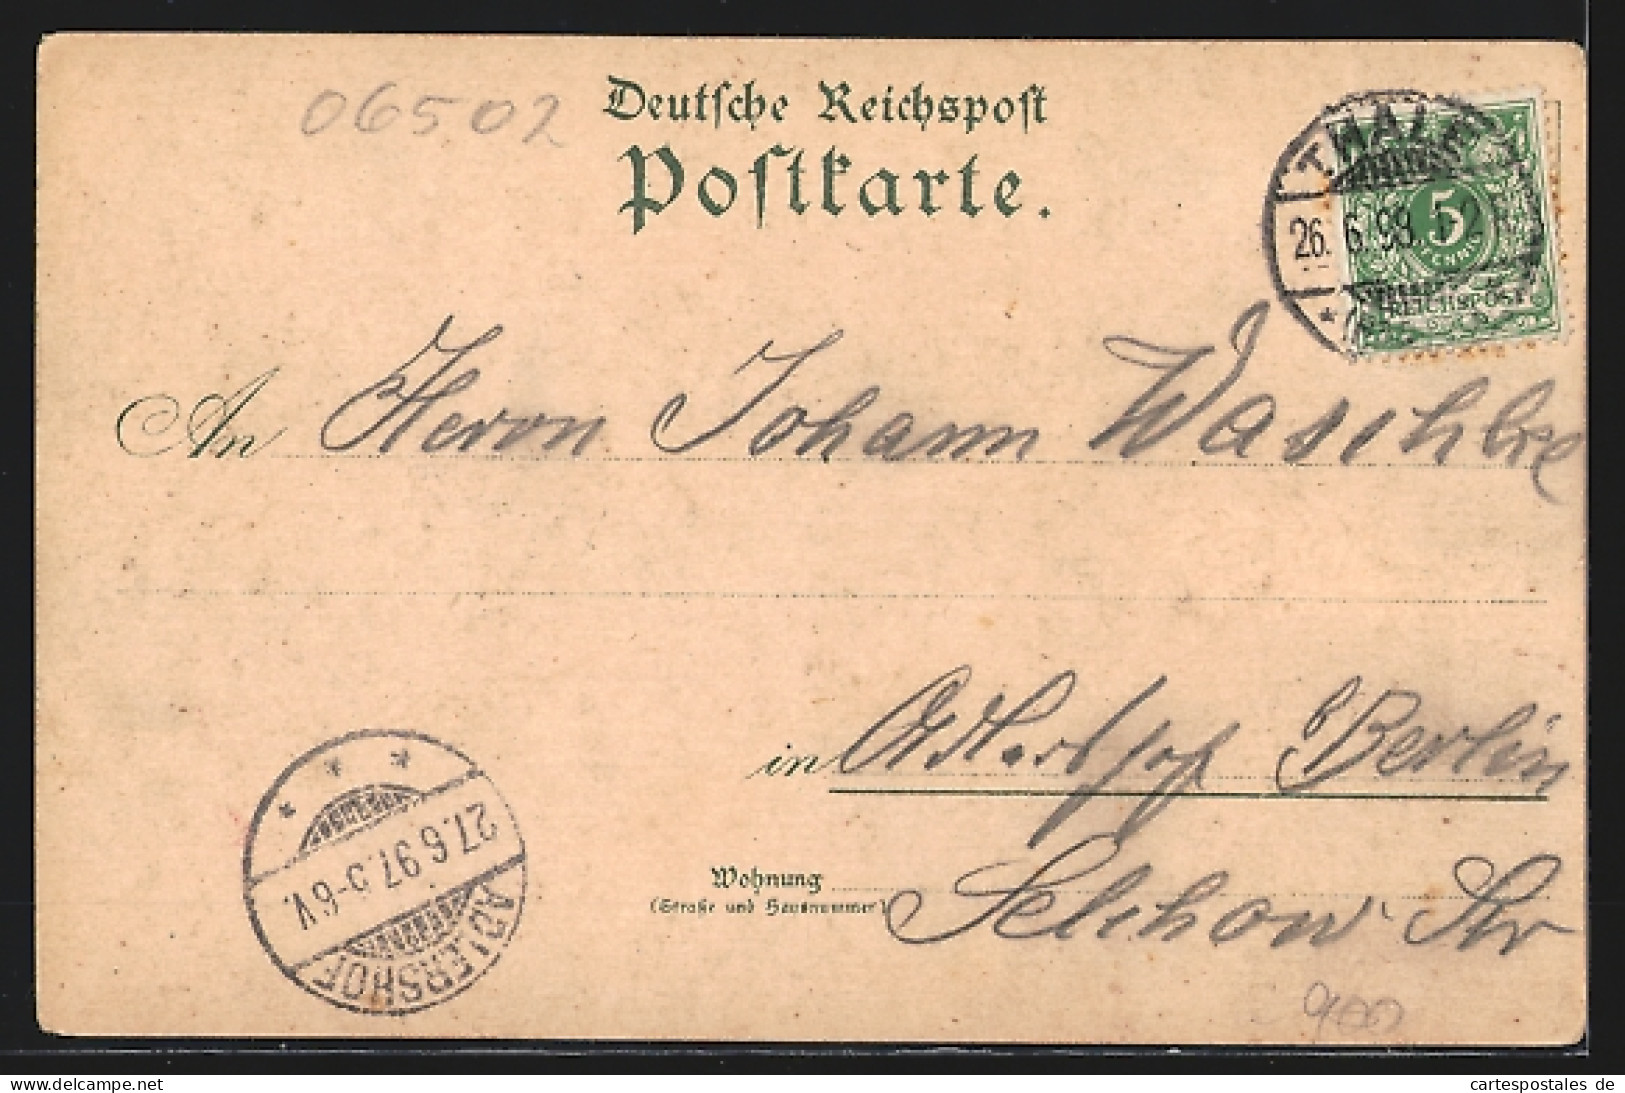 06502
Deutsche Reichspost
Postkarte.
THALE
26. 6. 98.
5
PFENNIG
REICHSPOST
An Herrn Johann
in Adlershof b Berlin
Wohnung Selchow Str
(Straße und Hausnummer)
27.6.97.5-6V.
ADLERSHOF
900
cartespostales de